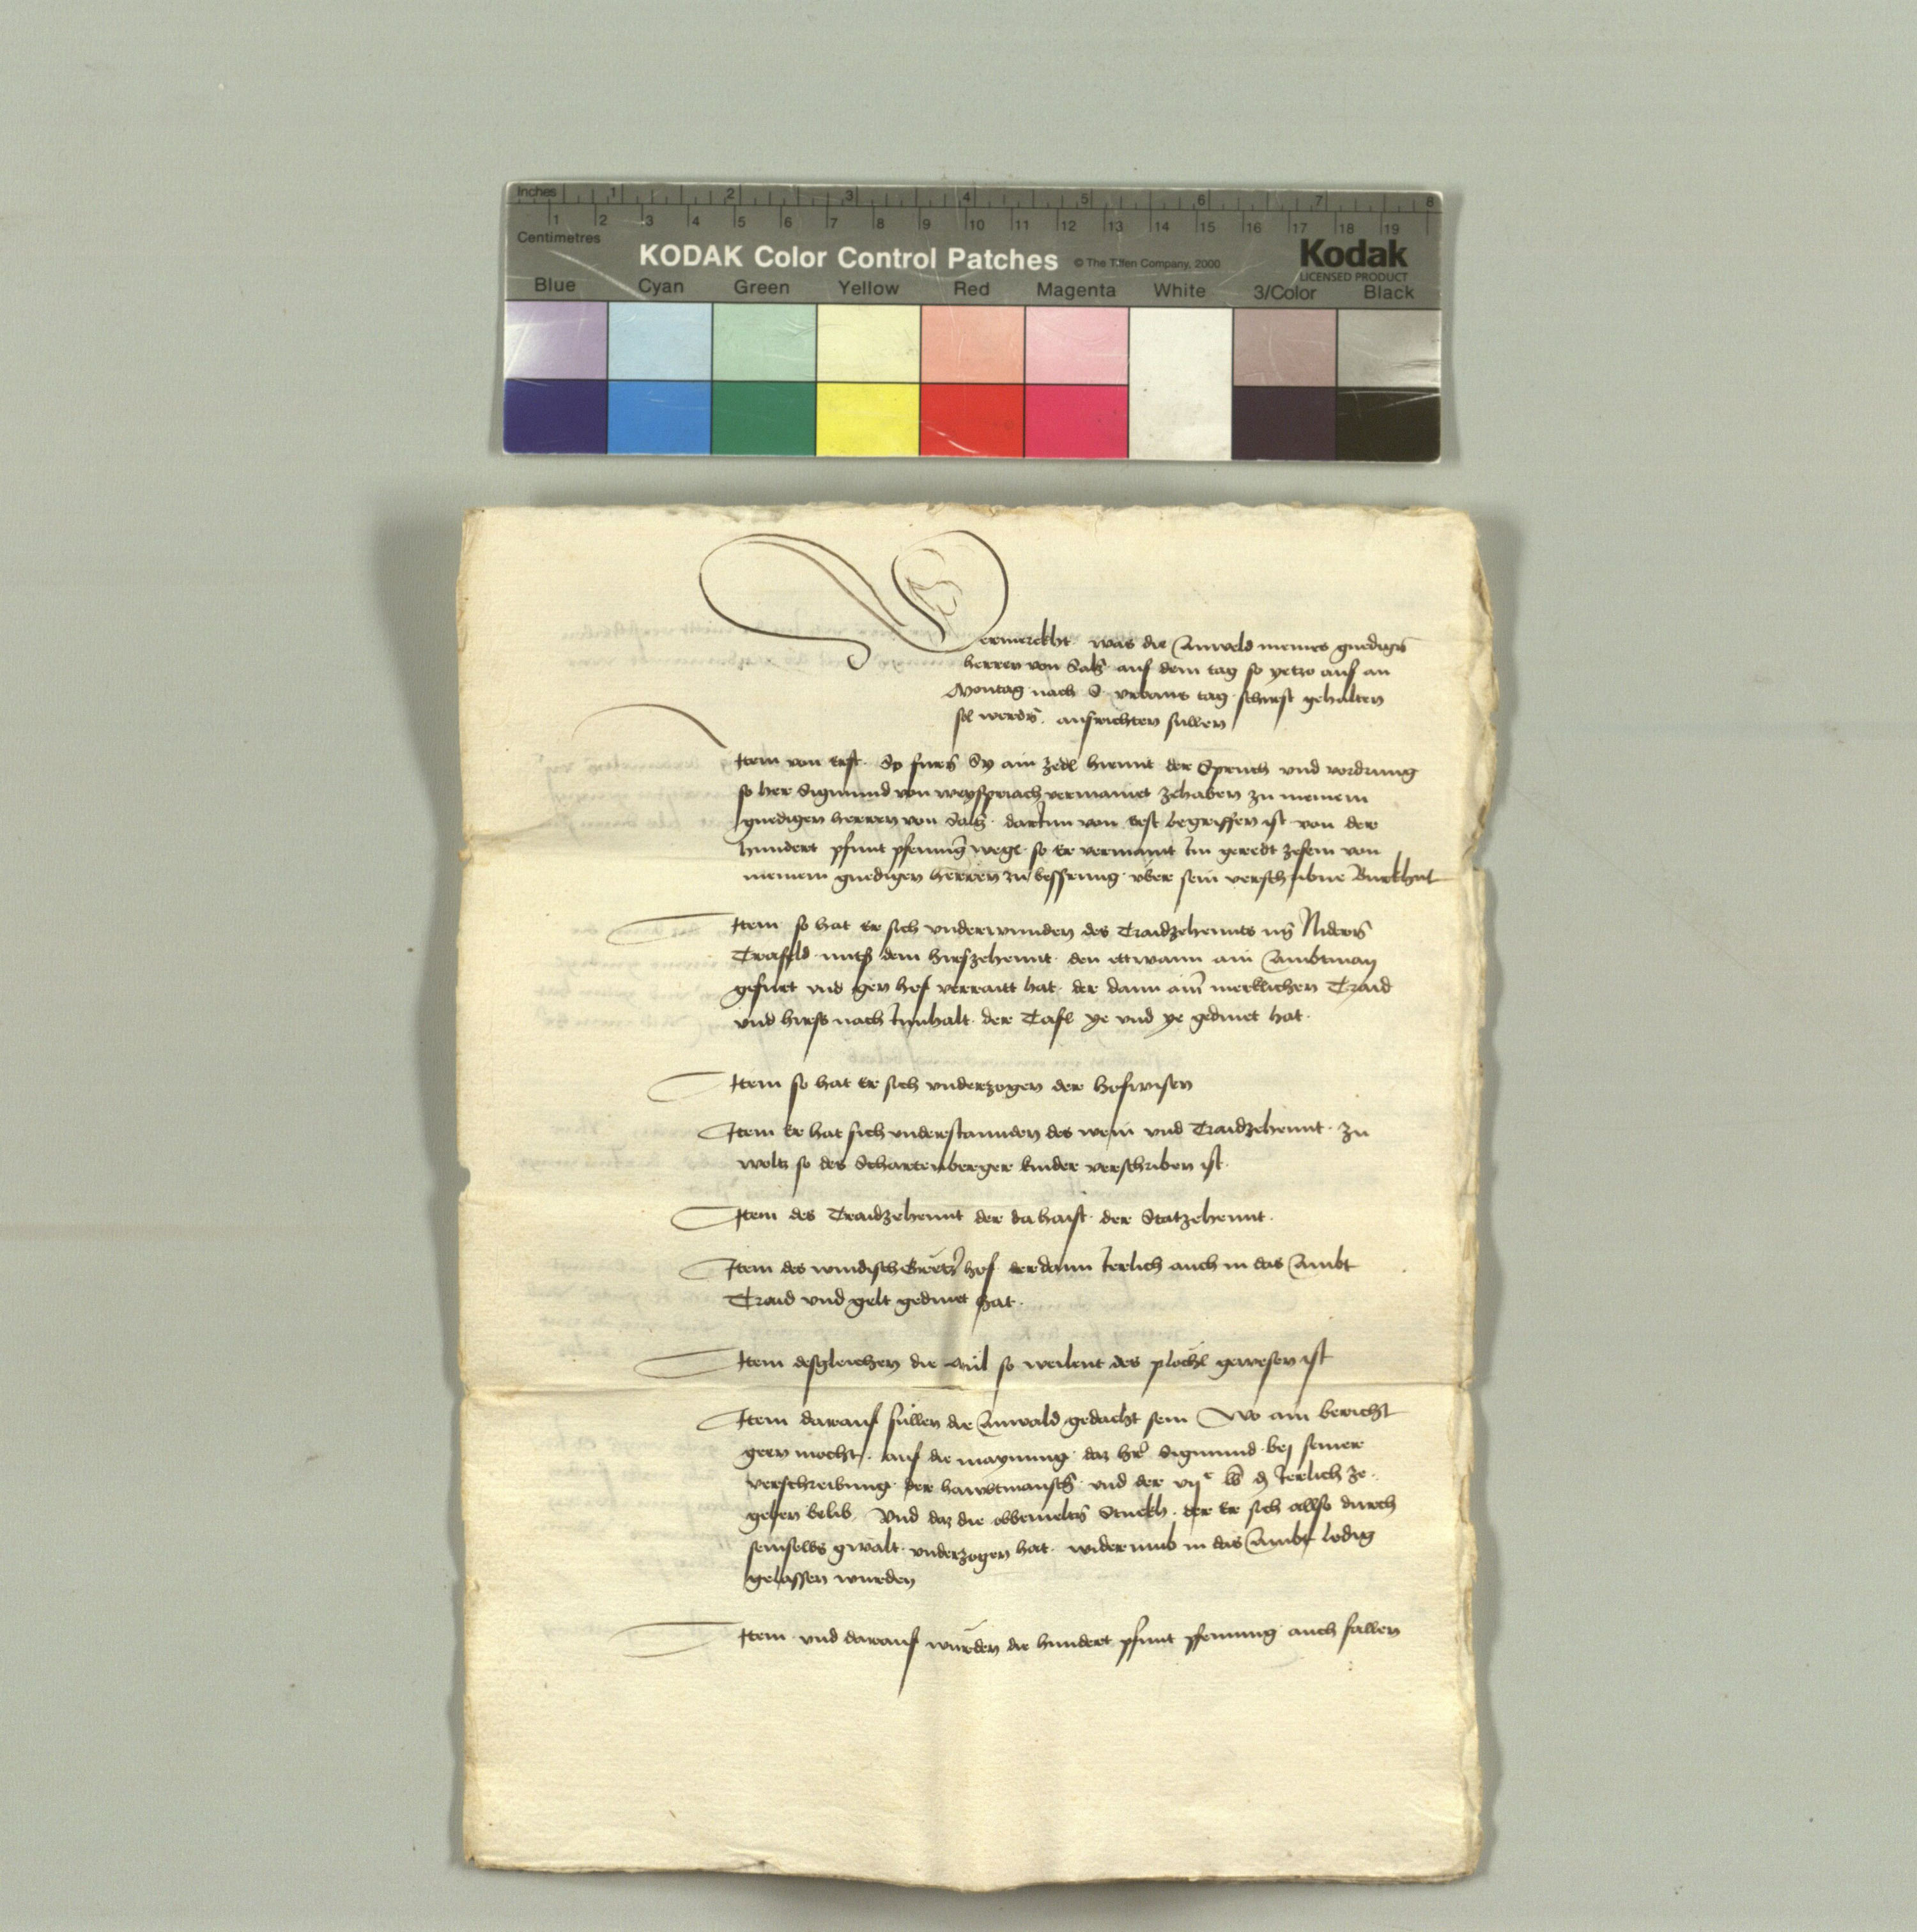 Inches 1 2 3 4 5 6 7 8
1 2 3 4 5 6 7 8 9 10 11 12 13 14 15 16 17 18 19
Centimetres
KODAK Color Control Patches © The Tiffen Company, 2000 Kodak
LICENSED PRODUCT
Blue Cyan Green Yellow Red Magenta White 3/Color Black
Vermerckht was die Anweld meines gnedigñ
herren von Saltz auf dem tag so yetzo auf an
Montag nach S. vrbans tag schirst gehalten
sol werdñ. ausrichten sullen
Item von erst. So furñ Sy ain zedl hiemit der Spruch vnd vordrung
so her Sigmund von weyspriach vermainet zehaben zu meinem
gnedigen herren von Saltz. darInn von erst begriffen ist von der
hundert pfunt pfennig wegen so er vermaint Im geredt zesein von
meinem gnedigen herren zu bessrung vber sein verschribne Burkhut
Item so hat er sich vnderwunden des Traidzehennts im Nidern
Trafeld mits dem hirszehennt den ettwann ain Ambtman
gefurt vnd gen hof verraitt hat. der dann ain merklichen Traid
vnd hirss nach Innhalt der Tafl ye vnd ye gedinet hat.
Item so hat er sich vnderzogen der hofwisen
Item er hat sich vnderstannden des wein vnd Traidzehennt zu
weltz so des Schartenberger kinder verschriben ist.
Item des Traidzehennt der da haist der Statzehennt.
Item des windischGretzer hof der dann Ierlich auch in das Ambt
Traid vnd gelt gedinet hat.
Item desgleichen die Mul so weilent des plochl gewesen ist
Item darauf sullen die Anwald gedacht sein Wo ain bericht
geen mocht. auf die maynung daz her Sigmund bey seiner
verschreibung der hawbtmanschafft vnd der vij c lb d Ierlich ze
geben belib. Vnd daz die obbemeltñ Stuckh. der er sich allso durch
seinselbs gwalt vnderzogen hat widerumb in das Ambt ledig
gelassen wurden
Item vnd darauf wurden die hundert pfunt pfenning auch fallen